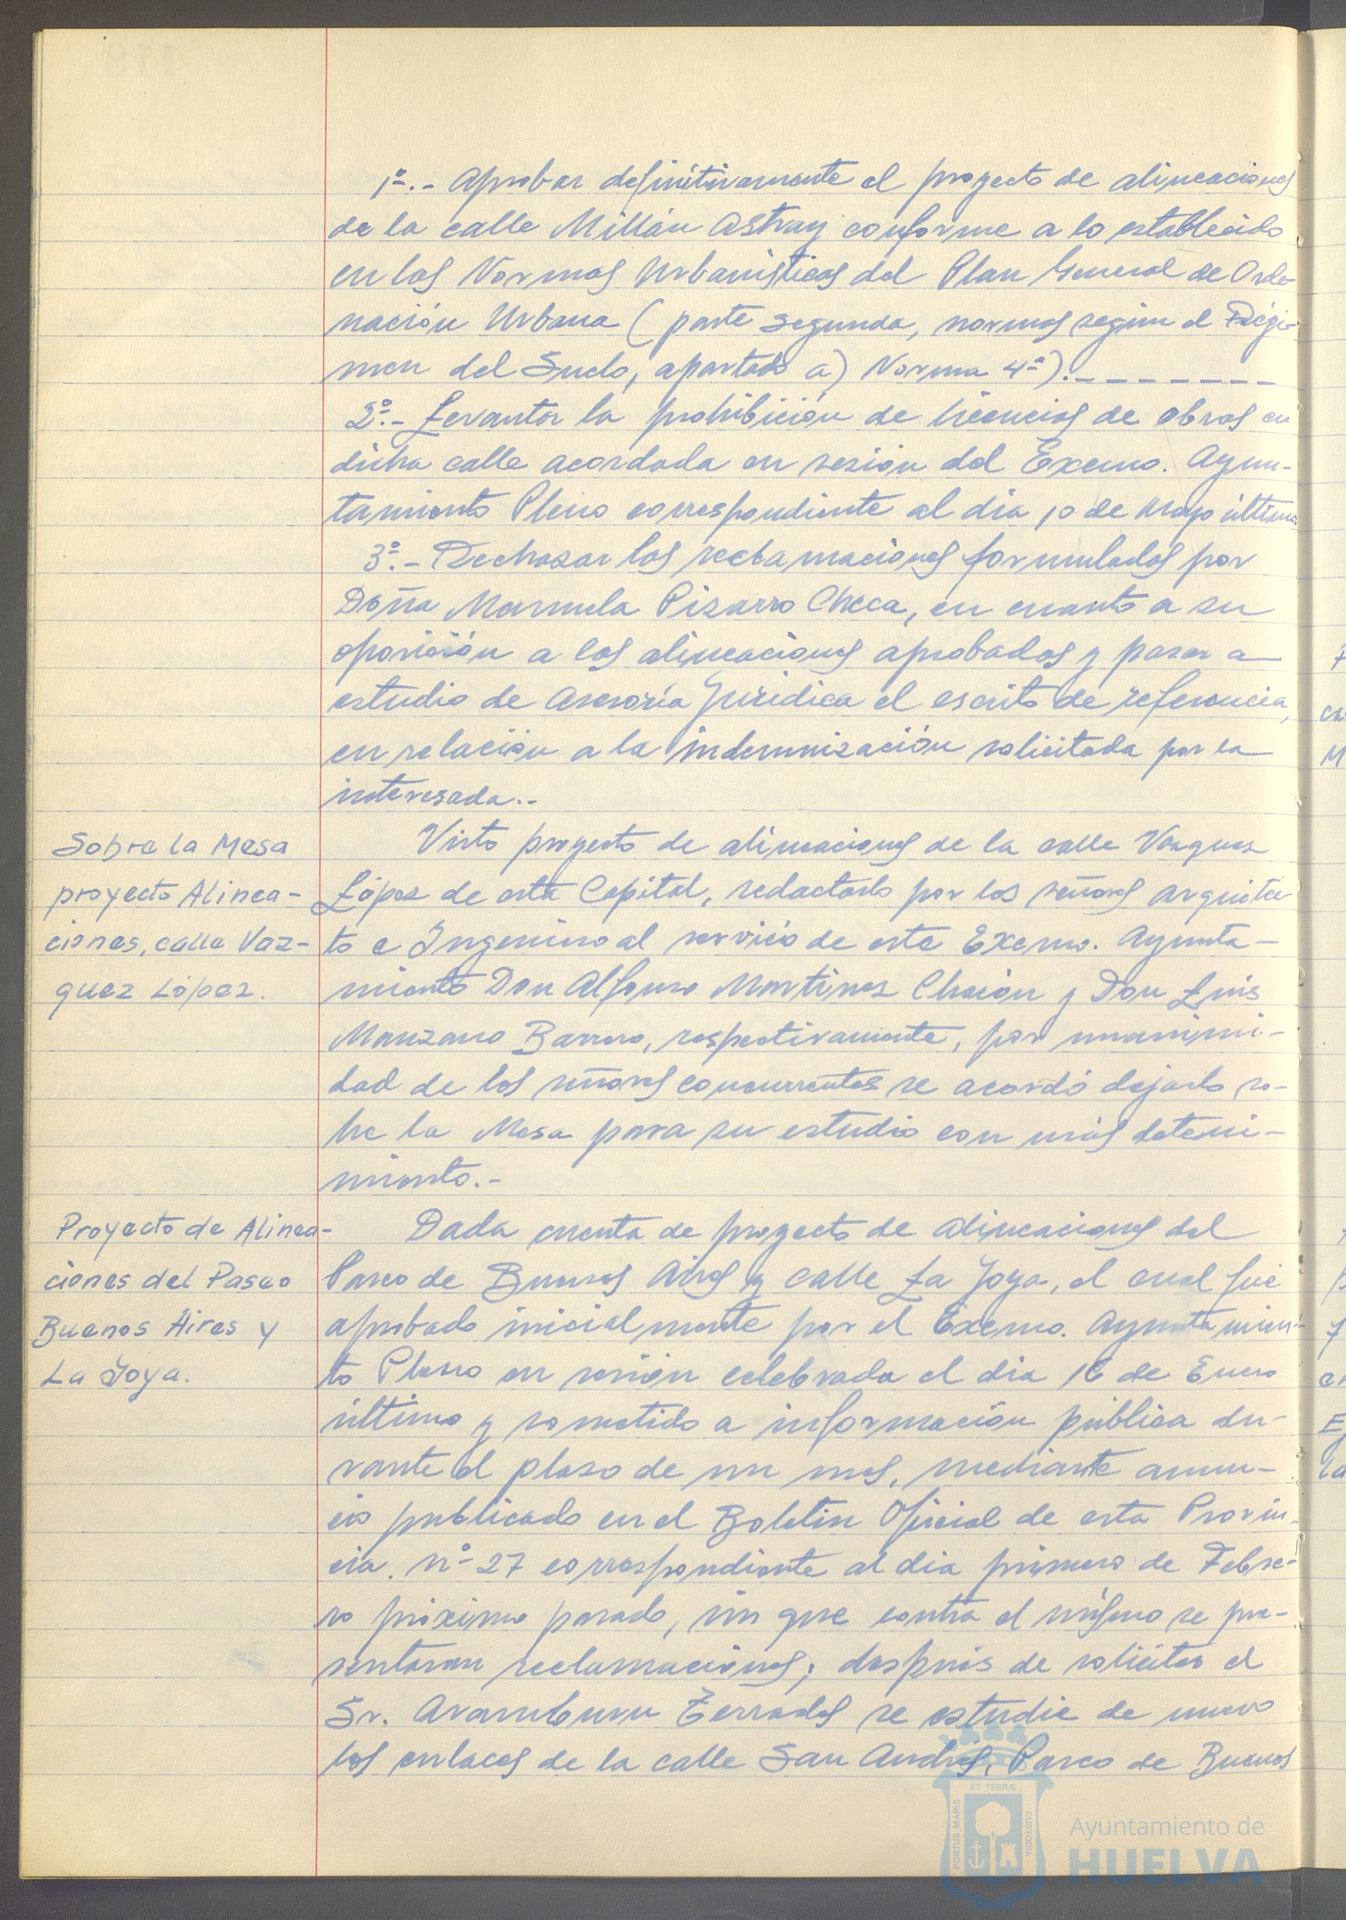 1º.- Aprobar definitivamente el proyecto de alineaciones
de la calle Millán Astray conforme a lo establecido
en las Normas Urbanísticas del Plan General de Orde-
nación Urbana (parte segunda, normas según el Régi-
men del Suelo, apartado a) Norma 4ª).- - - - - - - -
2º.- Levantar la prohibición de licencias de obras en
dicha calle acordada en sesión del Excmo. Ayun-
tamiento Pleno correspondiente al dia 10 de Mayo último.
3º.- Rechazar las reclamaciones formuladas por
Doña Manuela Pizarro Checa, en cuanto a su
oposición a las alineaciones aprobadas y pasar a
estudio de Asesoría Jurídica el escrito de referencia,
en relación a la indemnización solicitada por la
interesada.-
Sobre la Mesa
proyecto Alinea-
ciones, calle Vaz-
quez López.
Visto proyecto de alineaciones de la calle Vazquez
López de esta Capital, redactado por los señores Arquitec-
to e Ingeniero al servicio de este Excmo. Ayunta-
miento Don Alfonso Martinez Chacón y Don Luis
Manzano Barrero, respectivamente, por unanimi-
dad de los señores concurrentes se acordó dejarlo so-
bre la Mesa para su estudio con más deteni-
miento.-
Proyecto de Alinea-
ciones del Paseo
Buenos Aires y
La Joya.
Dada cuenta de proyecto de alineaciones del
Paseo de Buenos Aires y calle La Joya, el cual fué
aprobado inicialmente por el Excmo. Ayuntamien-
to Pleno en sesión celebrada el dia 16 de Enero
último y sometido a información pública du-
rante el plazo de un mes, mediante anun-
cio publicado en el Boletin Oficial de esta Provin-
cia, nº 27 correspondiente al dia primero de Febre-
ro próximo pasado, sin que contra el mismo se pre-
sentaran reclamaciones; después de solicitar el
Sr. Aramburu Terrades se estudie de nuevo
los enlaces de la calle San Andrés, Paseo de Buenos
PORTUS MARIS ET TERRÆ CUSTODIA
Ayuntamiento de
HUELVA